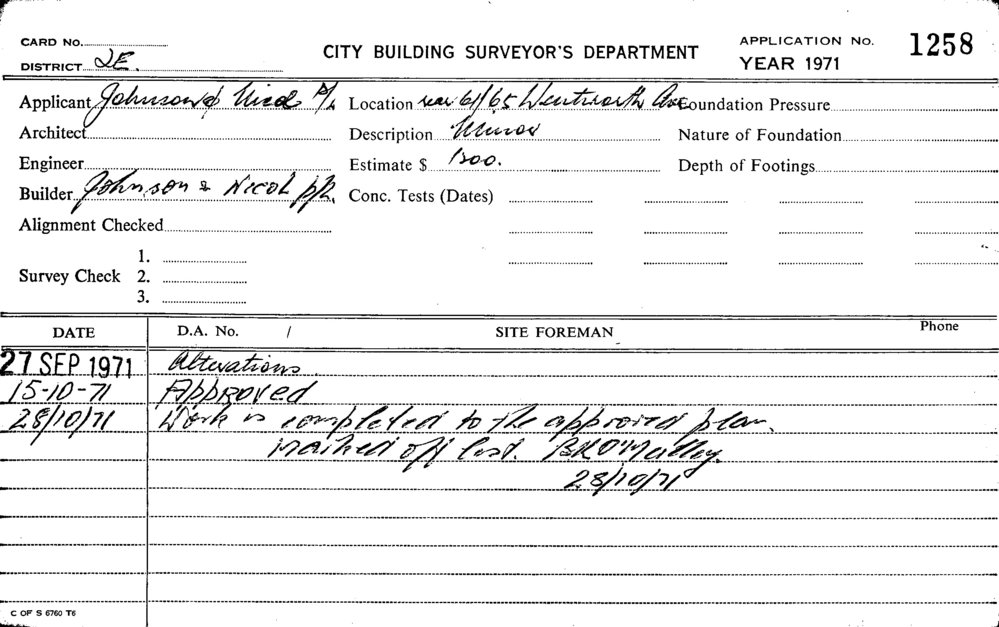 CARD No.
CITY BUILDING SURVEYOR'S DEPARTMENT
APPLICATION No. 1258
DISTRICT 2E.
YEAR 1971
Applicant Johnson & Nicol P/L Location rear 61/65 Wentworth Ave Foundation Pressure
Architect Description Minor Nature of Foundation
Engineer Estimate $ 1200. Depth of Footings
Builder Johnson & Nicol P/L. Conc. Tests (Dates)
Alignment Checked
1.
Survey Check 2.
3.
DATE D.A. No. / SITE FOREMAN Phone
27 SEP 1971 Alterations.
15-10-71 Approved
28/10/71 Work is completed to the approved plan.
marked off list. BKO'Malley.
28/10/71
C OF S 6760 T6